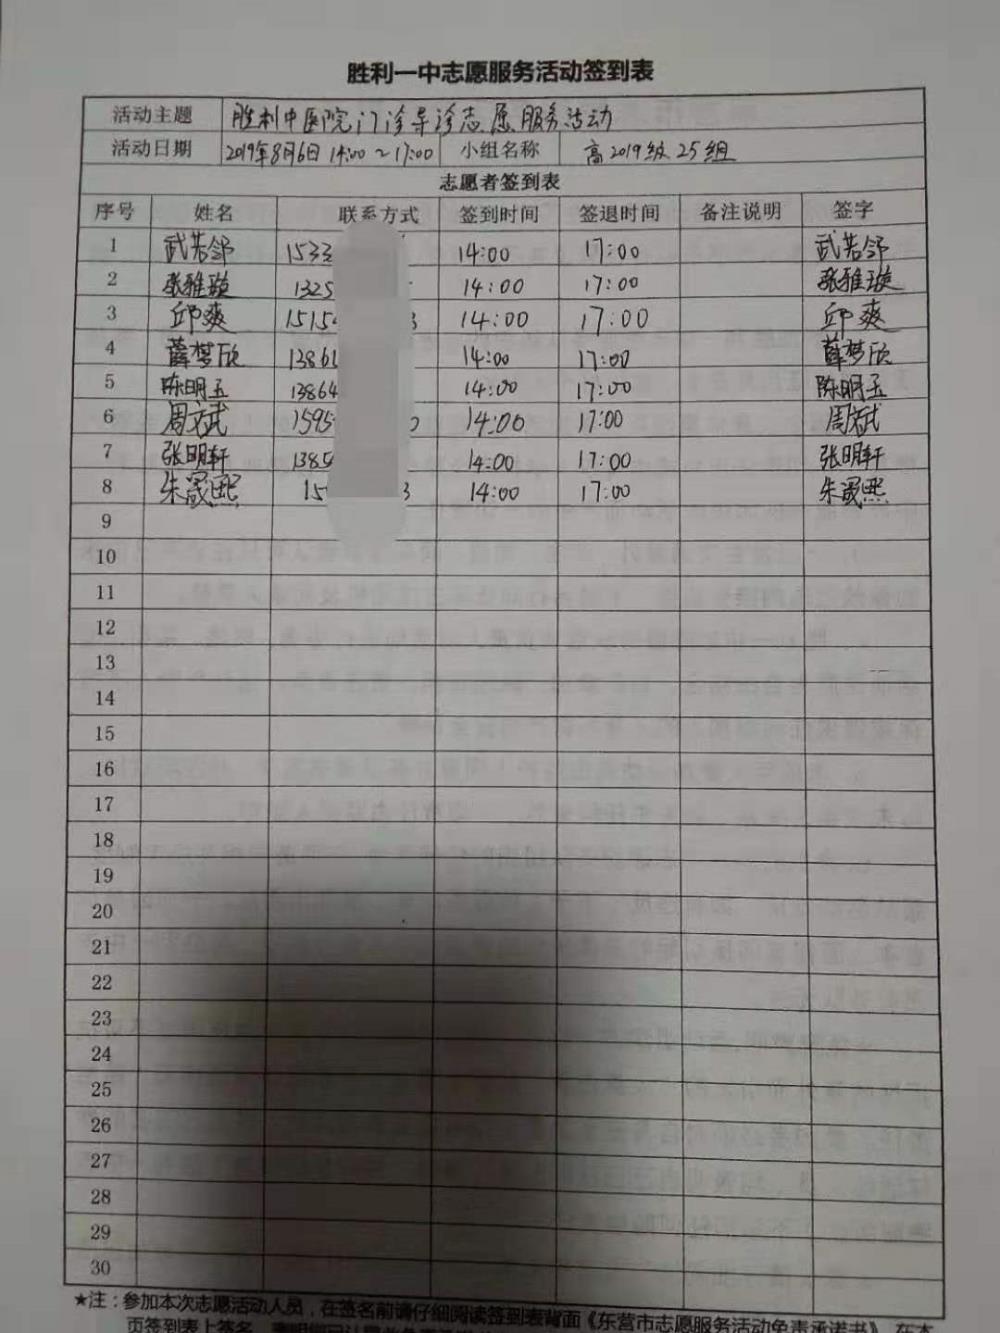 胜利一中志愿服务活动签到表
活动主题 胜利中医院门诊导诊志愿服务活动
活动日期 2019年8月6日 14:00~17:00 小组名称 高2019级25组
志愿者签到表
序号 姓名 联系方式 签到时间 签退时间 备注说明 签字
1 武若邻 1533 14:00 17:00 武若邻
2 张雅璇 1325 14:00 17:00 张雅璇
3 邱爽 1515 3 14:00 17:00 邱爽
4 薛梦欣 13861 14:00 17:00 薛梦欣
5 陈明玉 13864 14:00 17:00 陈明玉
6 周斌 1595 0 14:00 17:00 周斌
7 张明轩 1385 14:00 17:00 张明轩
8 朱晟熙 15 3 14:00 17:00 朱晟熙
9
10
11
12
13
14
15
16
17
18
19
20
21
22
23
24
25
26
27
28
29
30
★注：参加本次志愿活动人员，在签名前请仔细阅读签到表背面《东营市志愿服务活动免责承诺书》，在本
页签到表上签名